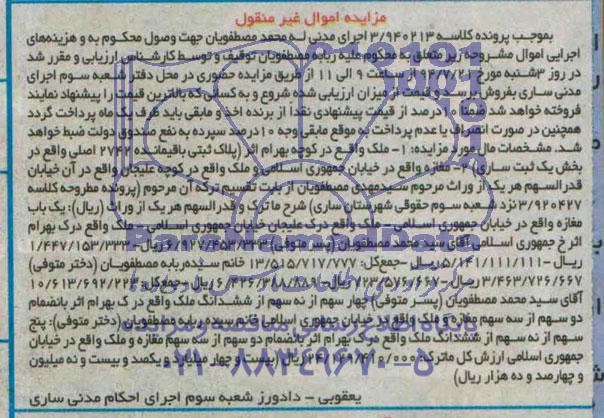 مزایده اموال غیر منقول
بموجب پرونده کلاسه ۳/۹۴۰۲۱۳ اجرای مدنی له محمد مصطفویان جهت وصول محکوم به و هزینه‌های
اجرایی اموال مشروحه زیر متعلق به محکوم علیه ربابه مصطفویان توقیف و توسط کارشناس ارزیابی و مقرر شد
در روز ۳شنبه مورخ ۹۴/۷/۲۱ از ساعت ۹ الی ۱۱ از طریق مزایده حضوری در محل دفتر شعبه سوم اجرای
مدنی ساری بفروش برسد و قیمت از میزان ارزیابی شده شروع و به کسانی که بالاترین قیمت را پیشنهاد نمایند
فروخته خواهد شد ضمنا ۱۰درصد از قیمت پیشنهادی نقدا از برنده اخذ و مابقی باید ظرف یک ماه پرداخت گردد
همچنین در صورت انصراف یا عدم پرداخت به موقع مابقی وجه ۱۰درصد سپرده به نفع صندوق دولت ضبط خواهد
شد. مشخصات مال مورد مزایده: ۱- ملک واقع در کوچه بهرام اثر (پلاک ثبتی باقیمانده ۲۷۴۲ اصلی واقع در
بخش یک ثبت ساری) ۲- مغازه واقع در خیابان جمهوری اسلامی و ملک واقع در کوچه علیجان واقع در آن خیابان
قدرالسهم هر یک از وراث مرحوم سیدمهدی مصطفویان از بابت تقسیم ترکه آن مرحوم (پرونده مطروحه کلاسه
۳/۹۲۰۴۲۷ نزد شعبه سوم حقوقی شهرستان ساری) شرح ماترک و قدرالسهم هر یک از وراث (ریال): یک باب
مغازه واقع در خیابان جمهوری اسلامی - ملک واقع درک علیجان خیابان جمهوری اسلامی - ملک واقع درک بهرام
اثر خ جمهوری اسلامی آقای سید محمد مصطفویان (پسر متوفی) ۶/۹۲۷/۴۵۳/۳۳۳ ریال- ۱/۴۴۷/۱۵۳/۳۳۳
ریال -۵/۱۴۱/۱۱۱/۱۱۱ ریال-جمع‌کل: ۱۳/۵۱۵/۷۱۷/۷۷۷ خانم سیده‌ربابه مصطفویان (دختر متوفی)
۳/۴۶۳/۷۲۶/۶۶۷ ریال- ۷۲۳/۵۷۶/۶۶۷ ریال- ۶/۴۲۶/۳۸۸/۸۸۹ ریال- جمع‌کل: ۱۰/۶۱۳/۶۹۲/۲۲۳
آقای سید محمد مصطفویان (پسر متوفی) چهار سهم از نه سهم از ششدانگ ملک واقع در ک بهرام اثر بانضمام
دو سهم از سه سهم مغازه و ملک واقع در خیابان جمهوری اسلامی خانم سیده ربابه مصطفویان (دختر متوفی): پنج
سهم از نه سهم از ششدانگ ملک واقع درک بهرام اثر بانضمام دو سهم از سه سهم مغازه و ملک واقع در خیابان
جمهوری اسلامی ارزش کل ماترک ۲۴/۱۲۹/۴۱۰/۰۰۰ ریال (بیست و چهار میلیارد و یکصد و بیست و نه میلیون
و چهارصد و ده هزار ریال)
یعقوبی - دادورز شعبه سوم اجرای احکام مدنی ساری
پایگاه اطلاع رسانی مناقصه و مزایده
۰۲۱-۸۸۳۴۹۶۷۰-۵